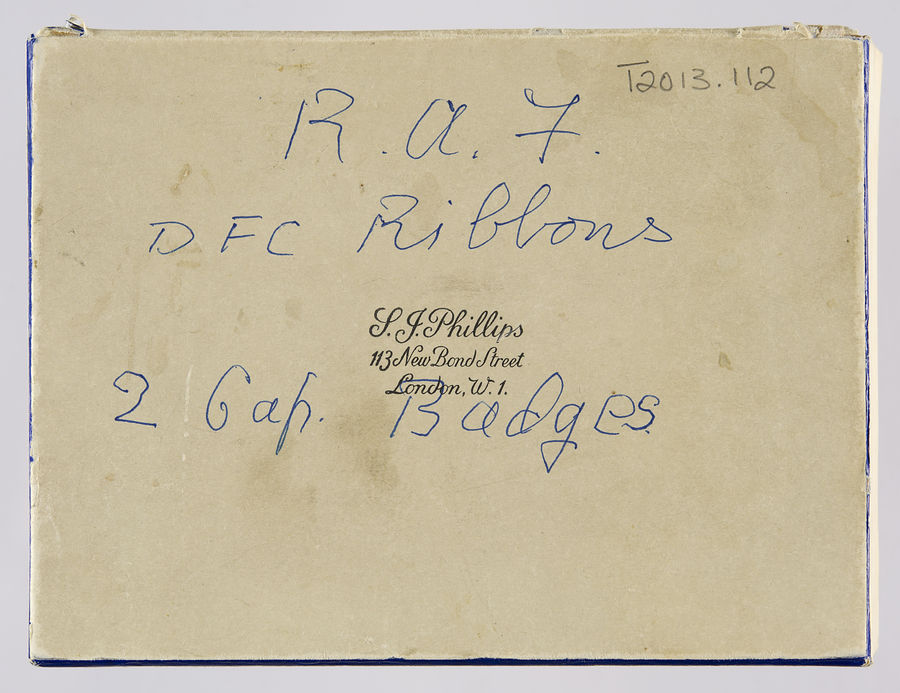 T2013.112
R.A.F.
DFC Ribbons
S. J. Phillips
113 New Bond Street
London, W. 1.
2 Cap. Badges.